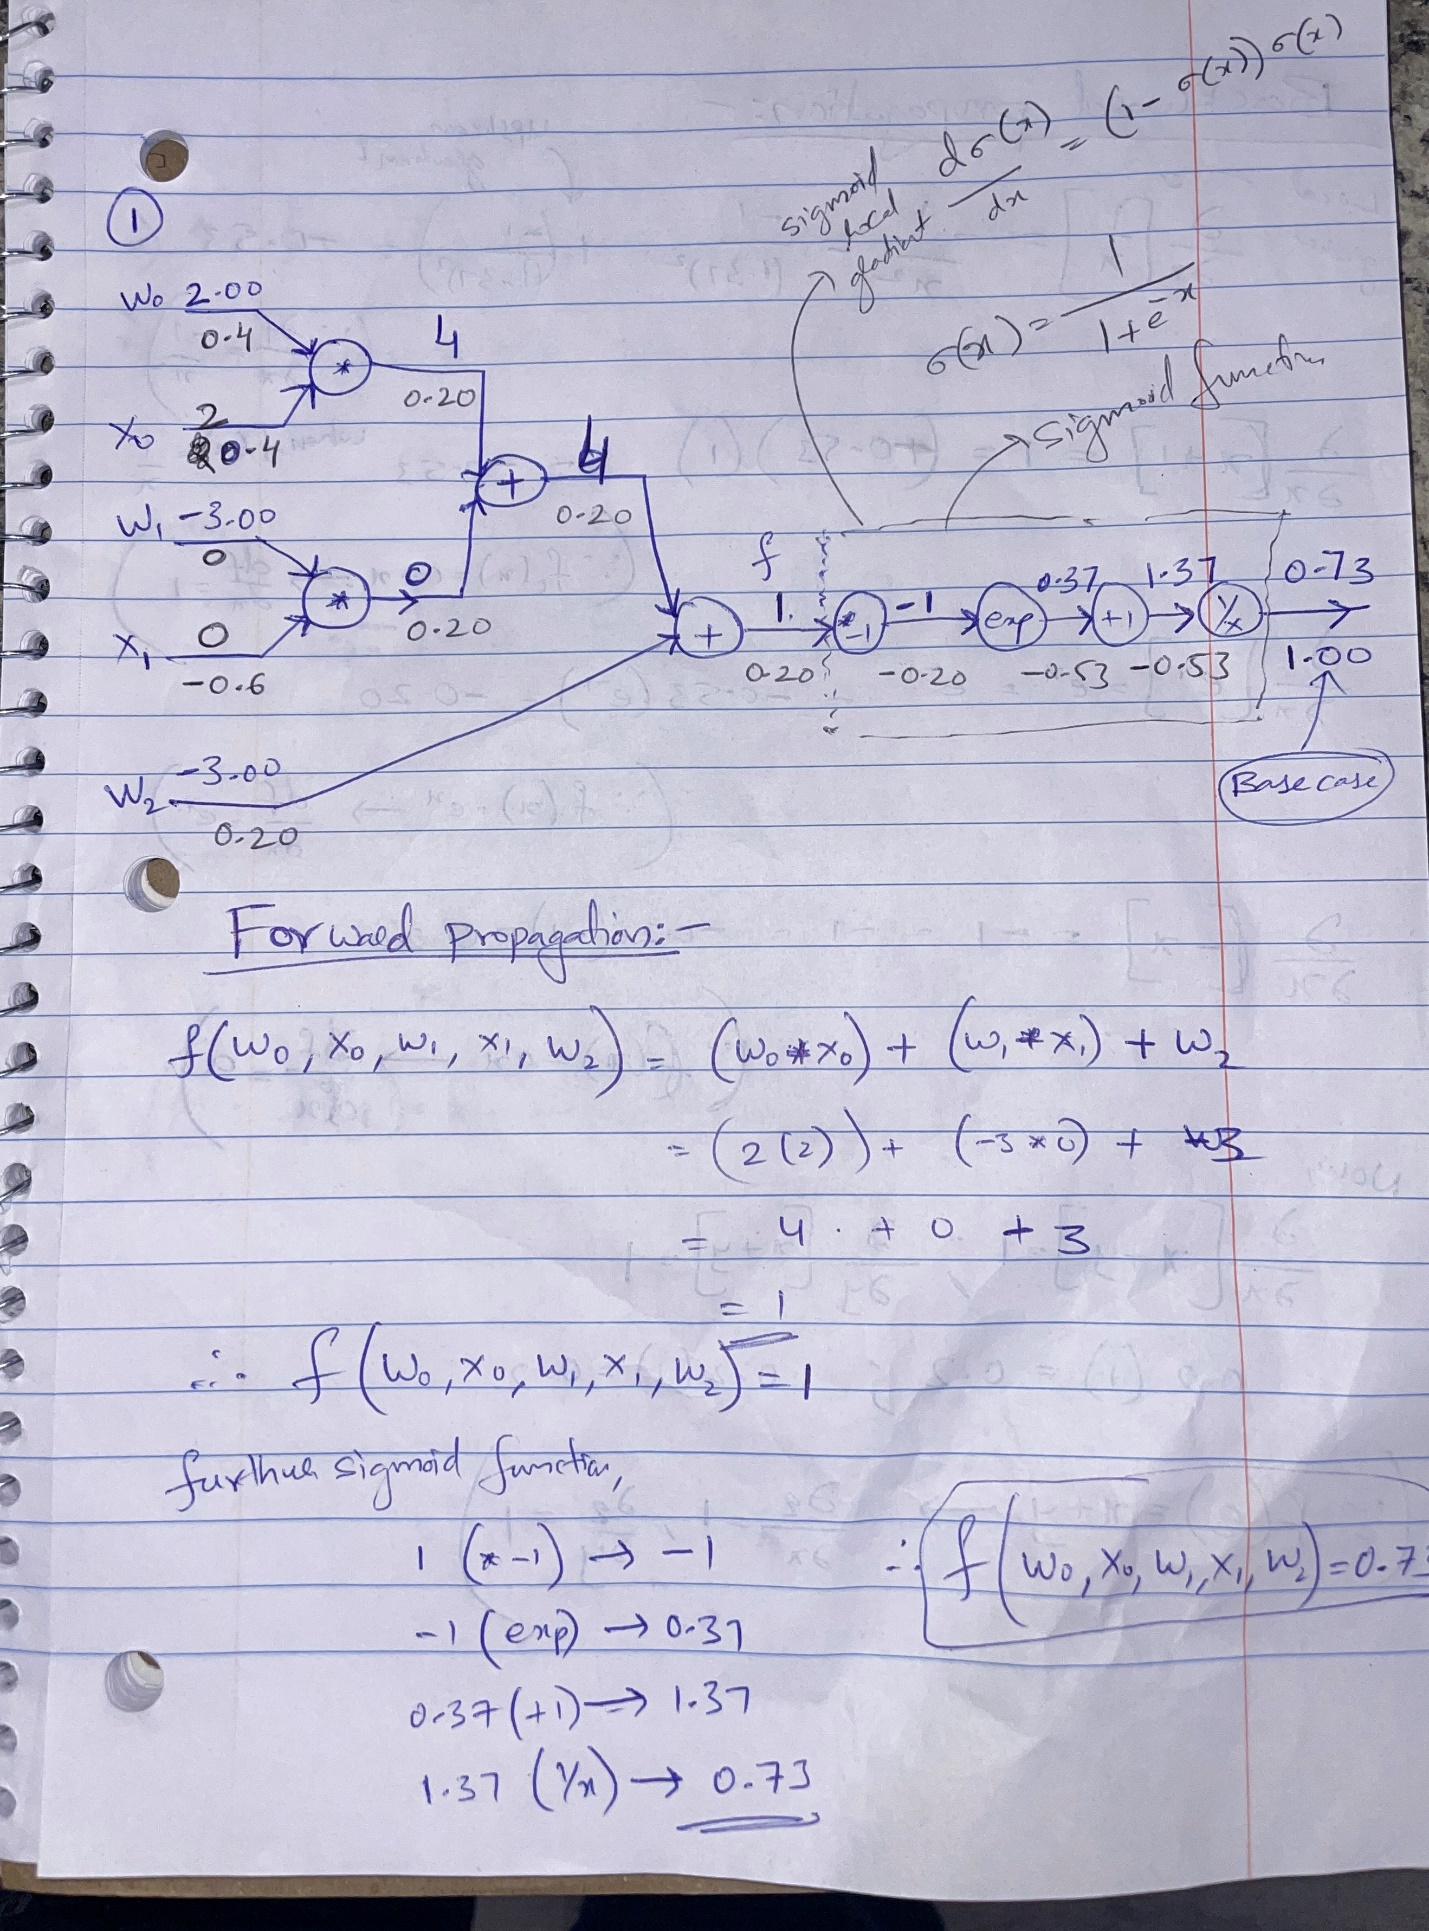 ①
sigmoid local gradient dσ(x)/dx = (1-σ(x))σ(x)
σ(x) = 1/(1+e^-x)
sigmoid function
W₀ 2.00
0.4
*
4
0.20
X₀ 2
0.4
+
4
0.20
W₁ -3.00
0
*
0
0.20
X₁ 0
-0.6
f
+
1.
0.20
*-1
-1
-0.20
exp
0.37
-0.53
+1
1.37
-0.53
1/x
0.73
1.00
Base case
W₂ -3.00
0.20
Forward propagation:-
f(W₀, X₀, W₁, X₁, W₂) = (W₀*X₀) + (W₁*X₁) + W₂
= (2(2)) + (-3*0) + 3
= 4 . + 0 + 3
= 1
∴ f(W₀, X₀, W₁, X₁, W₂) = 1
further sigmoid function,
1 (*-1) → -1
-1 (exp) → 0.37
0.37 (+1) → 1.37
1.37 (1/x) → 0.73
∴ f(W₀, X₀, W₁, X₁, W₂) = 0.73